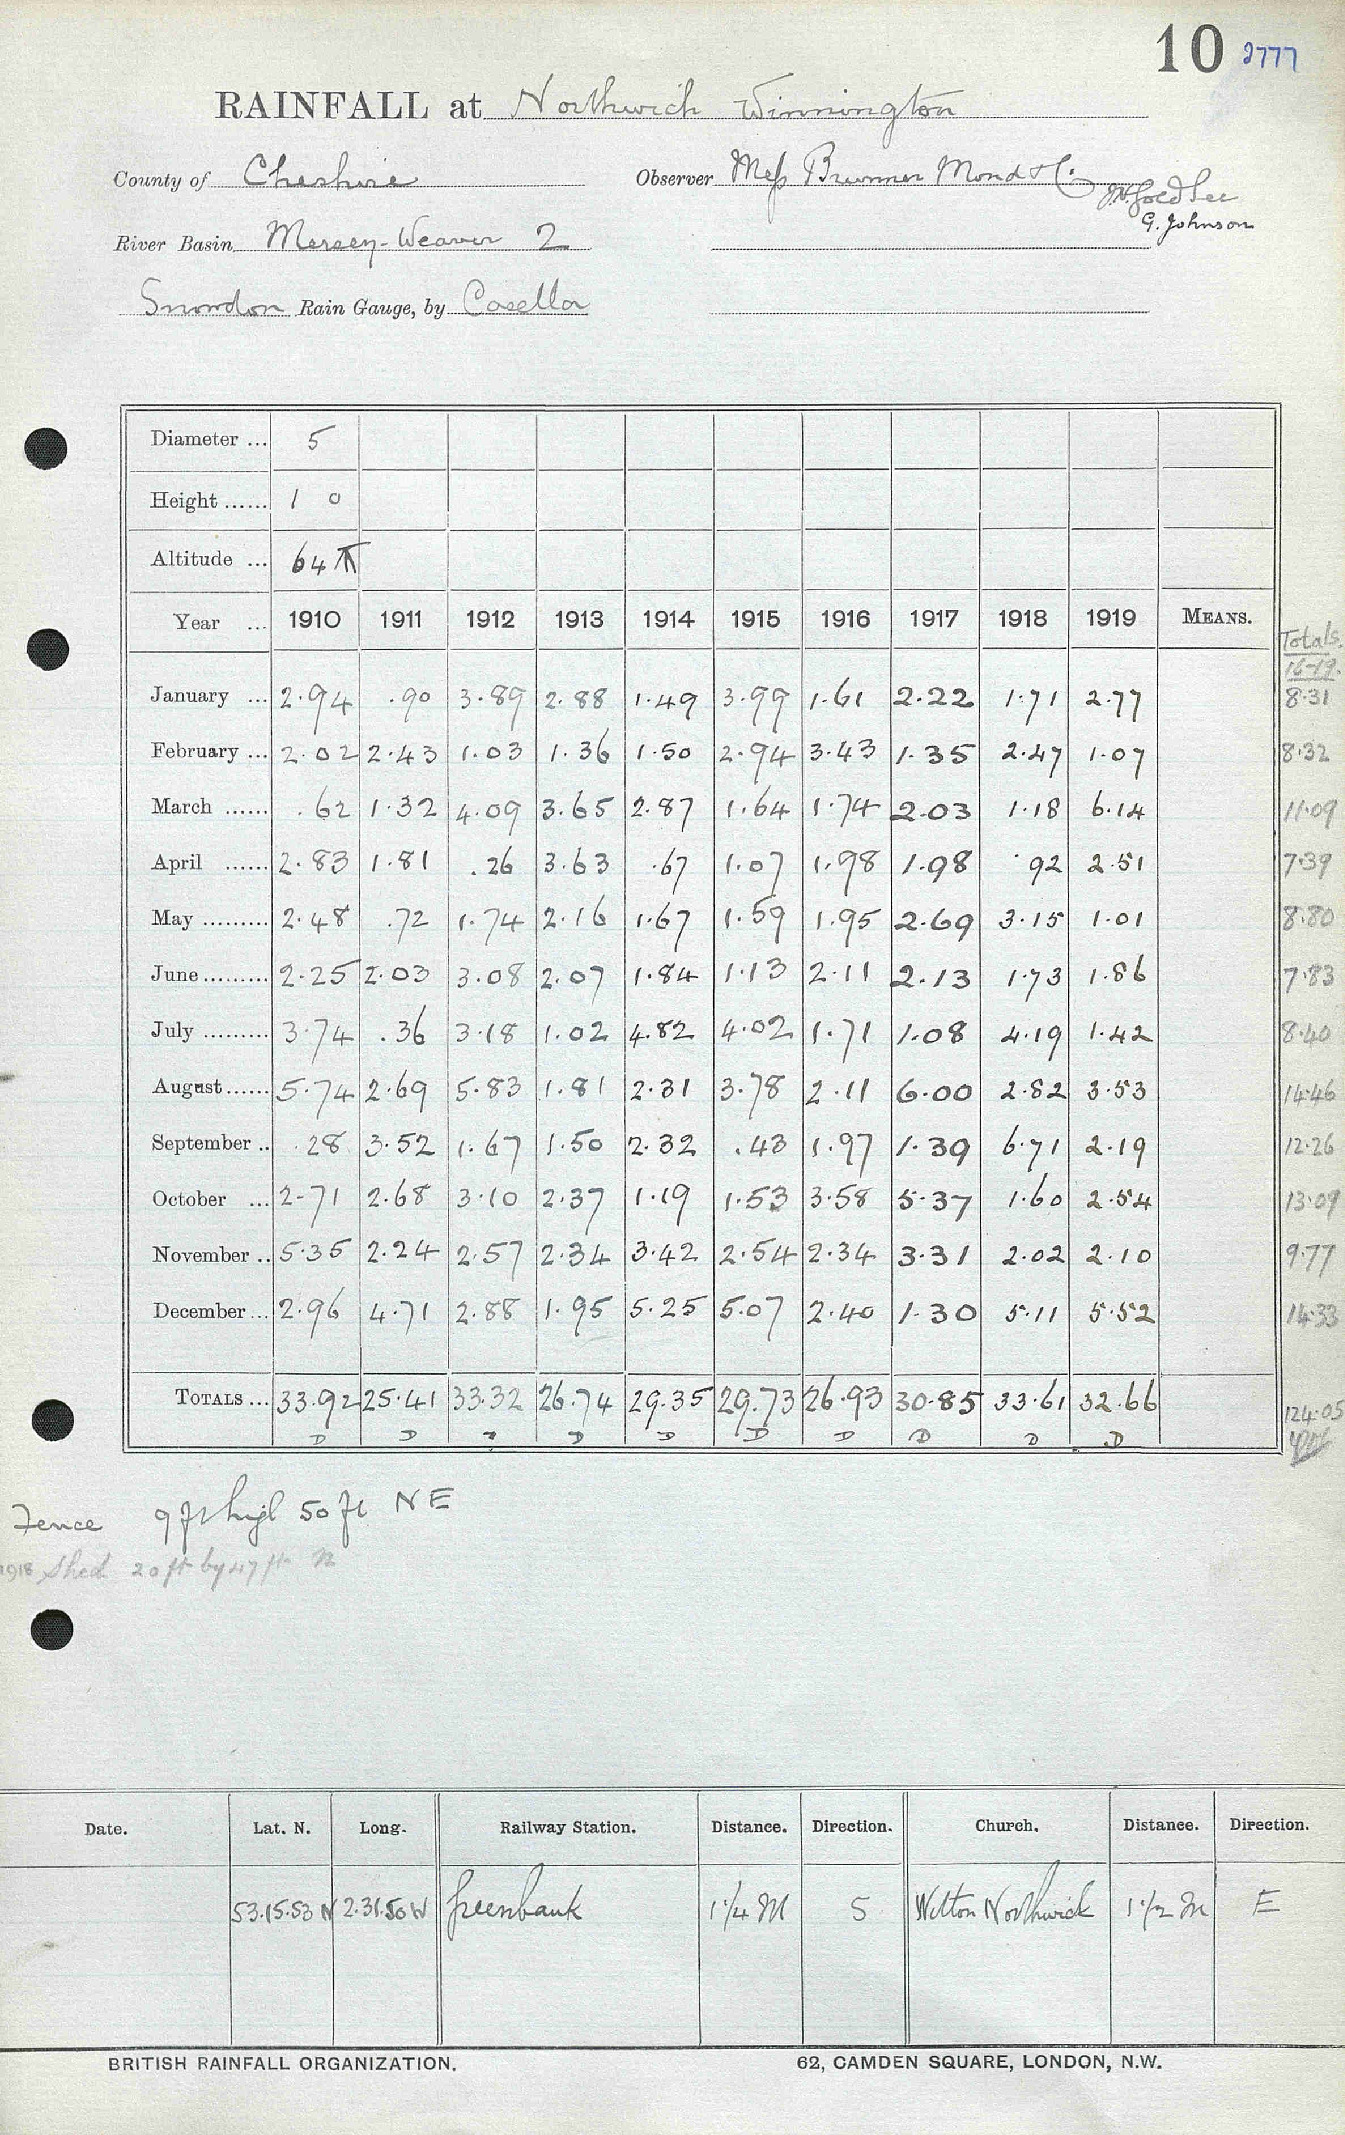 10 2777
RAINFALL at Northwich Winnington
County of Cheshire Observer Mess Brunner Mond & Co.
G. Johnson
River Basin Mersey-Weaver 2
Snowdon Rain Gauge, by Casella
Diameter ... 5
Height ...... 1 0
Altitude ... 64 ft
Year ... 1910 1911 1912 1913 1914 1915 1916 1917 1918 1919 MEANS. Totals 16-19.
January ... 2.94 .90 3.89 2.88 1.49 3.99 1.61 2.22 1.71 2.77 8.31
February ... 2.02 2.43 1.03 1.36 1.50 2.94 3.43 1.35 2.47 1.07 8.32
March ...... .62 1.32 4.09 3.65 2.87 1.64 1.74 2.03 1.18 6.14 11.09
April ...... 2.83 1.81 .26 3.63 .67 1.07 1.98 1.98 .92 2.51 7.39
May ......... 2.48 .72 1.74 2.16 1.67 1.59 1.95 2.69 3.15 1.01 8.80
June ......... 2.25 2.03 3.08 2.07 1.84 1.13 2.11 2.13 1.73 1.86 7.83
July ......... 3.74 .36 3.18 1.02 4.82 4.02 1.71 1.08 4.19 1.42 8.40
August ...... 5.74 2.69 5.83 1.81 2.31 3.78 2.11 6.00 2.82 3.53 14.46
September .. .28 3.52 1.67 1.50 2.32 .43 1.97 1.39 6.71 2.19 12.26
October ... 2.71 2.68 3.10 2.37 1.19 1.53 3.58 5.37 1.60 2.54 13.09
November .. 5.35 2.24 2.57 2.34 3.42 2.54 2.34 3.31 2.02 2.10 9.77
December ... 2.96 4.71 2.88 1.95 5.25 5.07 2.40 1.30 5.11 5.52 14.33
TOTALS ... 33.92 25.41 33.32 26.74 29.35 29.73 26.93 30.85 33.61 32.66 124.05
D D D D D D D D D D
Fence 9 ft high 50 ft NE
1918 Shed 20 ft by 47 ft N
Date. Lat. N. Long. Railway Station. Distance. Direction. Church. Distance. Direction.
53.15.53 N 2.31.50 W Greenbank 1 1/4 M S Witton Northwich 1 1/2 M E
BRITISH RAINFALL ORGANIZATION. 62, CAMDEN SQUARE, LONDON, N.W.